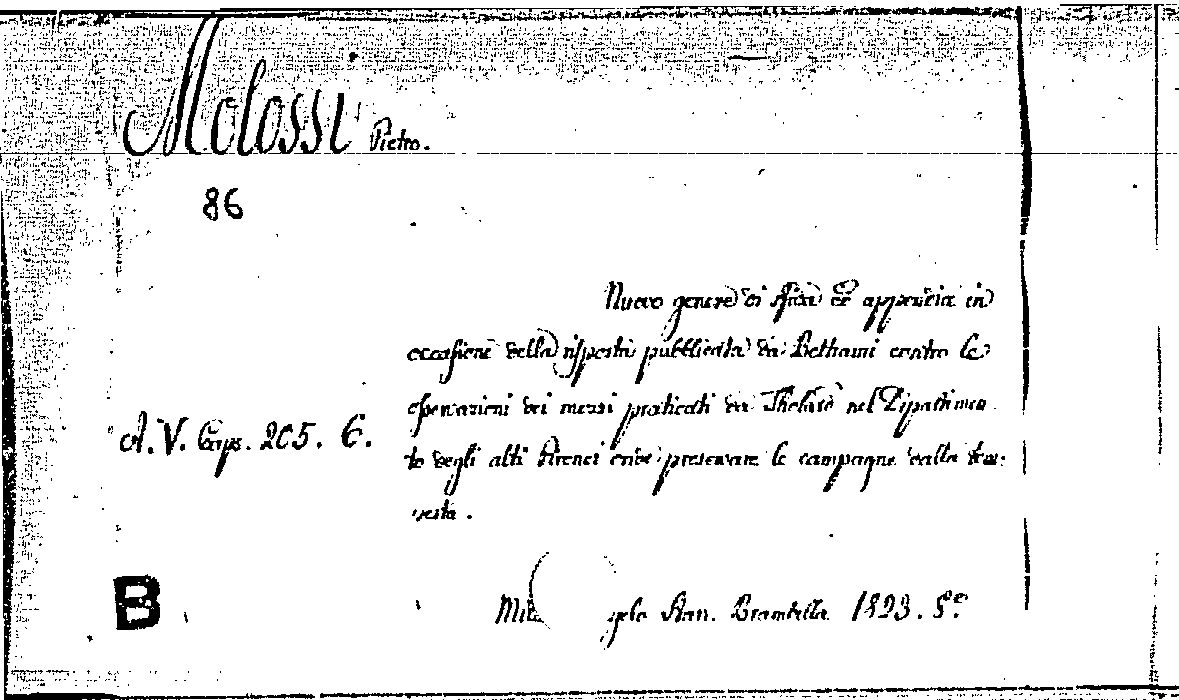 Molossi Pietro.
86
Nuovo genere di sfida ed appendice in
occasione della risposta pubblicata da Beltrami contro le
operazioni dei mezzi praticati da Tholard nel Dipartimen
A. V. Caps. 205. 6.
to degli alti Pirenei onde preservare le campagne dalla tem-
pesta.
B
Mila gelo Stan. Brambilla 1823. 8º.